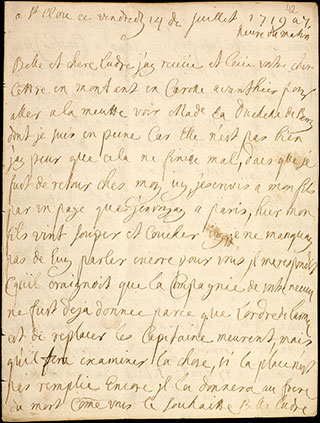 a St Clou ce vendredy 14 de Juillet 1719 a 7
heure du matin
42
Belle et chere Ludre jay receüe et leüe vostre chere
lettre en montant en Carosse avanthier pour
aller a la meutte voir Made la Duchesse de Berry
dont je suis en peine Car elle nest pas bien
jay peur que cela ne finisse mal, dais que je
fust de retour ches moy jescrivis a mon fils
par un page que jenvoyay a paris, hier mon
fils vint souper et coucher icy je ne manquay
pas de luy parler encore pour vous il me respondit
quil craignoit que la Compagnie de vostre neveu
ne fust desja donnee parce que lordre de larmée
est de replacer les Capitaine meurent, mais
quil feroit examiner la chose, si la place nest
pas remplie Encore il la donnera au frere
du mort Come vous le souhaittes Belle Ludre